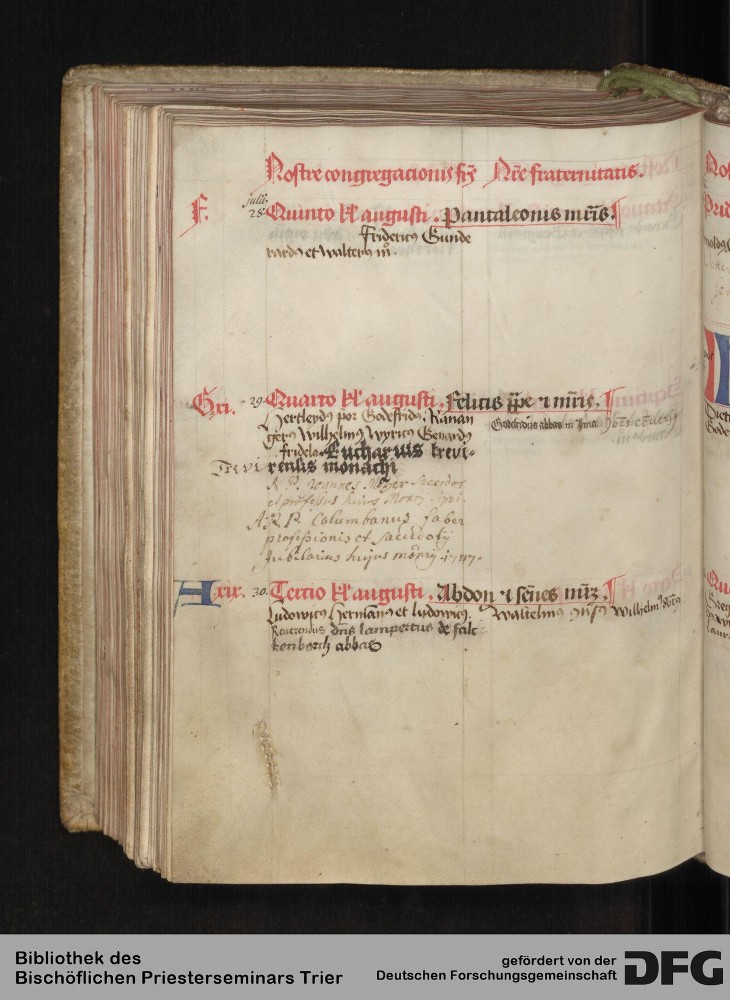 Nostre congregacionis frs Nre fraternitatis.
F. julii 28. Quinto kl' augusti. Pantaleonis mris.
Fridericus Gunde
rardus et walterus mo.
G xi. 29. Quarto kl' augusti. Felicis ppe et mris.
Godefridus abbas in
Wilhelmus Wyricus Gerardus
fridelo Eucharius trevi-
Trevi rensis monachi
R. P. Joannes Mayer Sacerdos
et professus huius Monrij. 1721.
A. R. P. Columbanus faber
professionis et sacerdotij
Jubilarius hujus mopry. 1747.
A xix. 30. Tercio kl' augusti. Abdon et senes mrz.
Ludowicus Hermannus et ludowicus. Waltelmus
Reuerendus dns lampertus de falc-
kenborch abbas
Bibliothek des
Bischöflichen Priesterseminars Trier
gefördert von der
Deutschen Forschungsgemeinschaft DFG